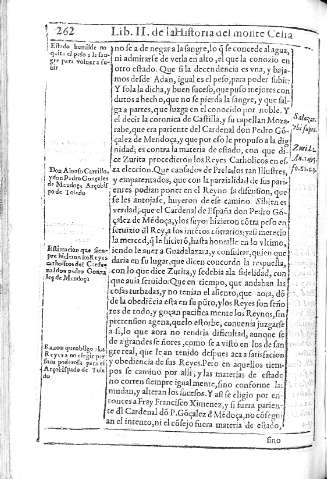 262 Lib. II. de la Historia del monte Celia
Estado humilde no
quita el peso a la san
gre para voluer a su
bir
no se a de negar a la sangre, lo q̃ se concede al agua,
ni admirarse de verla en alto, el que la conozio en
otro estado. Que si la decendencia es vna, y baja-
mos desde Adan, igual es el peso, para poder subir.
Y sola la dicha, y buen suceso, que puso mejores con
dutos a hecho, que no se pierda la sangre, y que sal-
ga a partes, que luzga en el conocido por noble. Y
el decir la coronica de Castilla, y su capellan Moza-
rabe, que era pariente del Cardenal don Pedro Gõ-
çalez de Mendoça, y que por eso le propuso a la dig-
nidad; es contra la materia de estado, con que di-
ce Zurita procedieron los Reyes Catholicos en es-
ta eleccion. Que cansados de Prelados tan Illustres,
y emparentados, que con la parcialidad de sus pari-
entes podian poner en el Reyno la disension, que
se les antojase, huyeron de ese camino. Si bien es
verdad, que el Cardenal de España don Pedro Gõ-
çalez de Mẽdoça, y los suyos hizieron cõtra peso en
seruicio del Rey,
la merced, q̃ le hizierõ, hasta honralle en lo vltimo,
iendo le a uer a Guadalaxara, y consultar, quien que
daria en su lugar, que dicen concorda la respuesta,
con lo que dice Zurita, y se debia a la fidelidad, con
que auia seruido. Que en tiempo, que andaban las
cosas turbadas, y no tenian el asiento, que aora, dõ
de la obediẽcia està en su pũto, y los Reyes son seño
res de todo, y goçan pacifica mente los Reynos, sin
pretension agena, que lo estorbe, conuenia juzgarse
a si, lo que aora no tendria dificultad, aunque se
de a grandes señores, como se a visto en los de san-
gre real, que le an tenido despues aca a satisfacion
y obediencia de sus Reyes. Pero en aquellos tiem-
pos se camino por alli, y las materias de estado
no corren siempre igualmente, sino conforme las
mudan, y alteran los sucesos. Y asi se eligio por en-
tonces a Fray Francisco Ximenez, y si fuera parien-
te dl Cardenal dõ P. Gõçalez d Mẽdoça, no cõsegu
an el intento, ni el cõsejo fuera materia de estado,
sino
Don Alonso Carrillo
y don Pedro Gonçalez
de Mendoça Arçobis
po de Toledo
Estimacion que siem
pre hicieron los Reyes
catholicos del Carde
nal don Pedro Gonça
lez de Mendoça
Razon que obligo a los
Reyes a no elegir per
sona poderosa para el
Arçobispado de Tole
do
Salazar